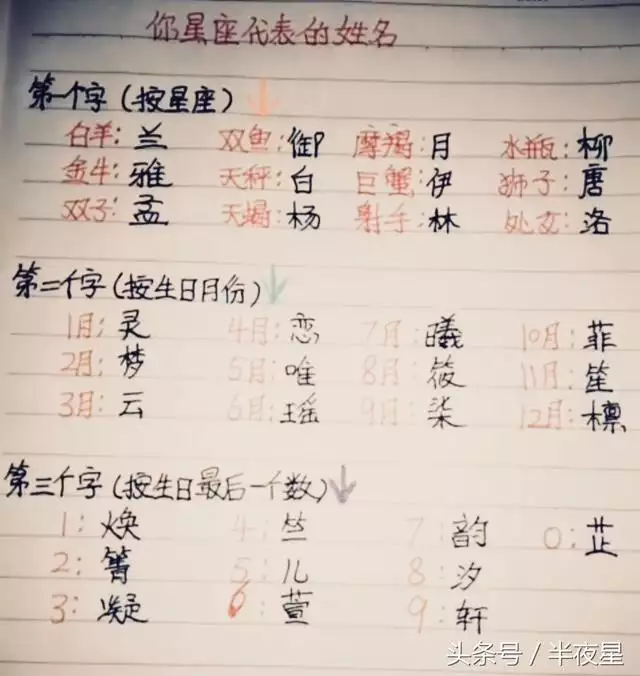 你星座代表的姓名
第一个字(按星座)
白羊:兰 双鱼:御 摩羯:月 水瓶:柳
金牛:雅 天秤:白 巨蟹:伊 狮子:唐
双子:孟 天蝎:杨 射手:林 处女:洛
第二个字(按生日月份)
1月:灵 4月:恋 7月:曦 10月:菲
2月:梦 5月:唯 8月:筱 11月:笙
3月:云 6月:瑶 9月:柒 12月:檩
第三个字(按生日最后一个数)
1:焕 4:丝 7:韵 0:芷
2:箐 5:儿 8:汐
3:凝 6:萱 9:轩
头条号/半夜星